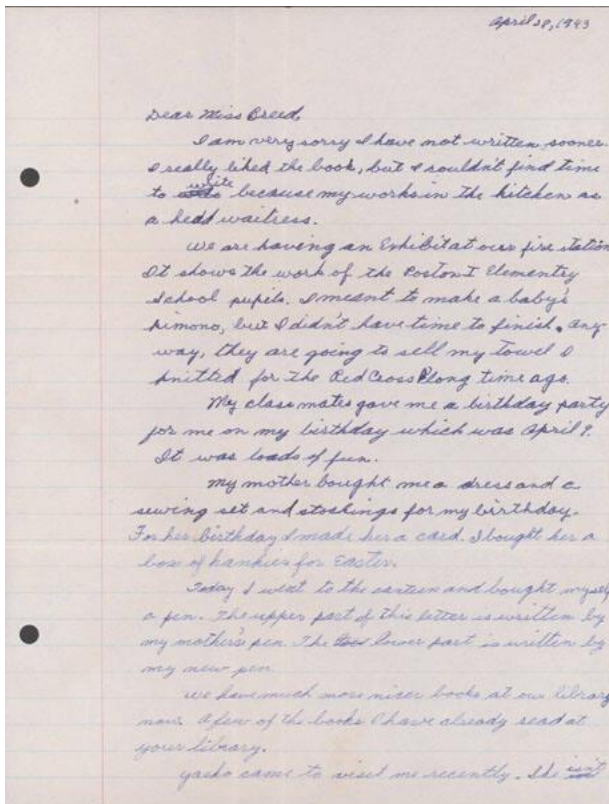 April 28, 1943
Dear Miss Breed,
I am very sorry I have not written sooner.
I really liked the book, but I couldn't find time
to write because my works in the kitchen as
a head waitress.
We are having an Exhibit at our fire station
It shows the work of the Poston I Elementry
School pupils. I meant to make a baby's
kimono, but I didn't have time to finish. Any-
way, they are going to sell my towel I
knitted for the Red Cross long time ago.
My class mates gave me a birthday party
for me on my birthday which was April 9.
It was loads of fun.
My mother bought me a dress and a
sewing set and stockings for my birthday.
For her birthday I made her a card. I bought her a
box of hankies for Easter.
Today I went to the canteen and bought myself
a pen. The upper part of this letter is written by
my mother's pen. The lower part is written by
my new pen.
We have much more nicer books at our library
now. A few of the books I have already read at
your library.
Yaeko came to visit me recently. She isn't